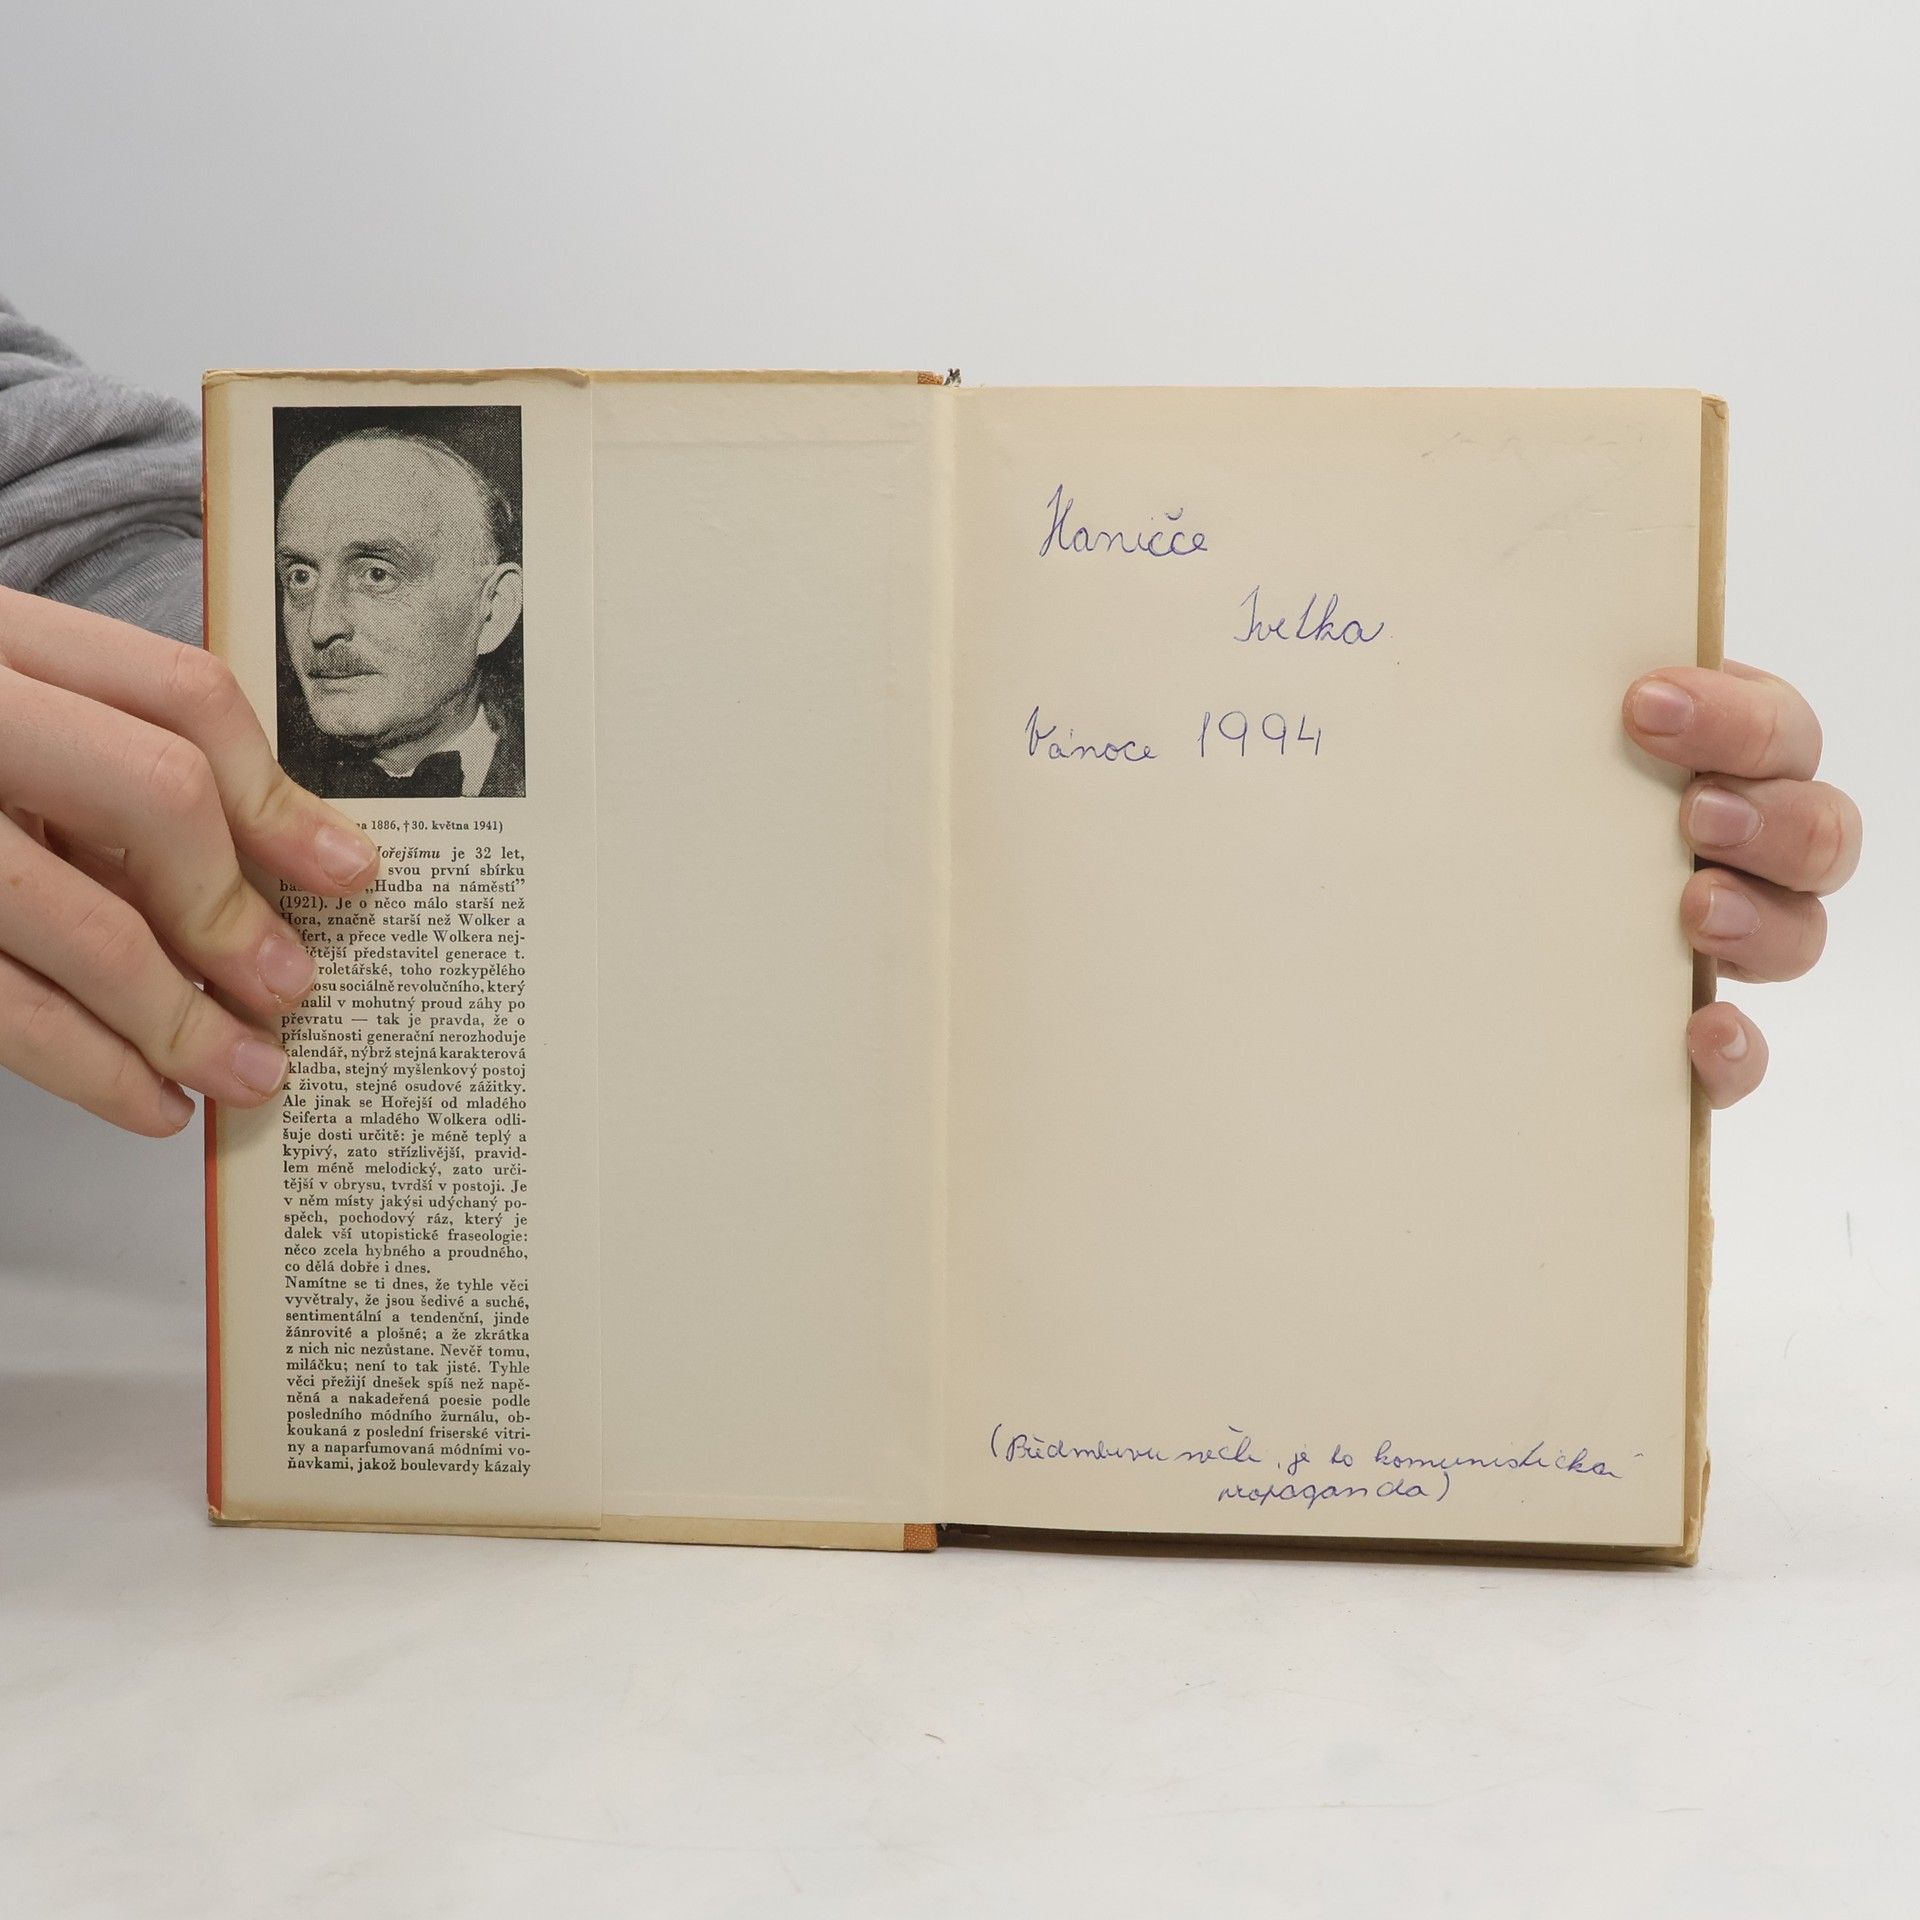 na 1886, †30. května 1941)
ořejšímu je 32 let,
svou první sbírku
„Hudba na náměstí”
(1921). Je o něco málo starší než
Hora, značně starší než Wolker a
ifert, a přece vedle Wolkera nej-
čtější představitel generace t.
roletářské, toho rozkypělého
osu sociálně revolučního, který
alil v mohutný proud záhy po
převratu — tak je pravda, že o
příslušnosti generační nerozhoduje
kalendář, nýbrž stejná karakterová
kladba, stejný myšlenkový postoj
k životu, stejné osudové zážitky.
Ale jinak se Hořejší od mladého
Seiferta a mladého Wolkera odli-
šuje dosti určitě: je méně teplý a
kypivý, zato střízlivější, pravid-
lem méně melodický, zato urči-
tější v obrysu, tvrdší v postoji. Je
v něm místy jakýsi udýchaný po-
spěch, pochodový ráz, který je
dalek vší utopistické fraseologie:
něco zcela hybného a proudného,
co dělá dobře i dnes.
Namítne se ti dnes, že tyhle věci
vyvětraly, že jsou šedivé a suché,
sentimentální a tendenční, jinde
žánrovité a plošné; a že zkrátka
z nich nic nezůstane. Nevěř tomu,
miláčku; není to tak jisté. Tyhle
věci přežijí dnešek spíš než napě-
něná a nakadeřená poesie podle
posledního módního žurnálu, ob-
koukaná z poslední friserské vitri-
ny a naparfumovaná módními vo-
ňavkami, jakož boulevardy kázaly
Haničce
Ivetka
Vánoce 1994
(Předmluvu nečti, je to komunistická
propaganda)